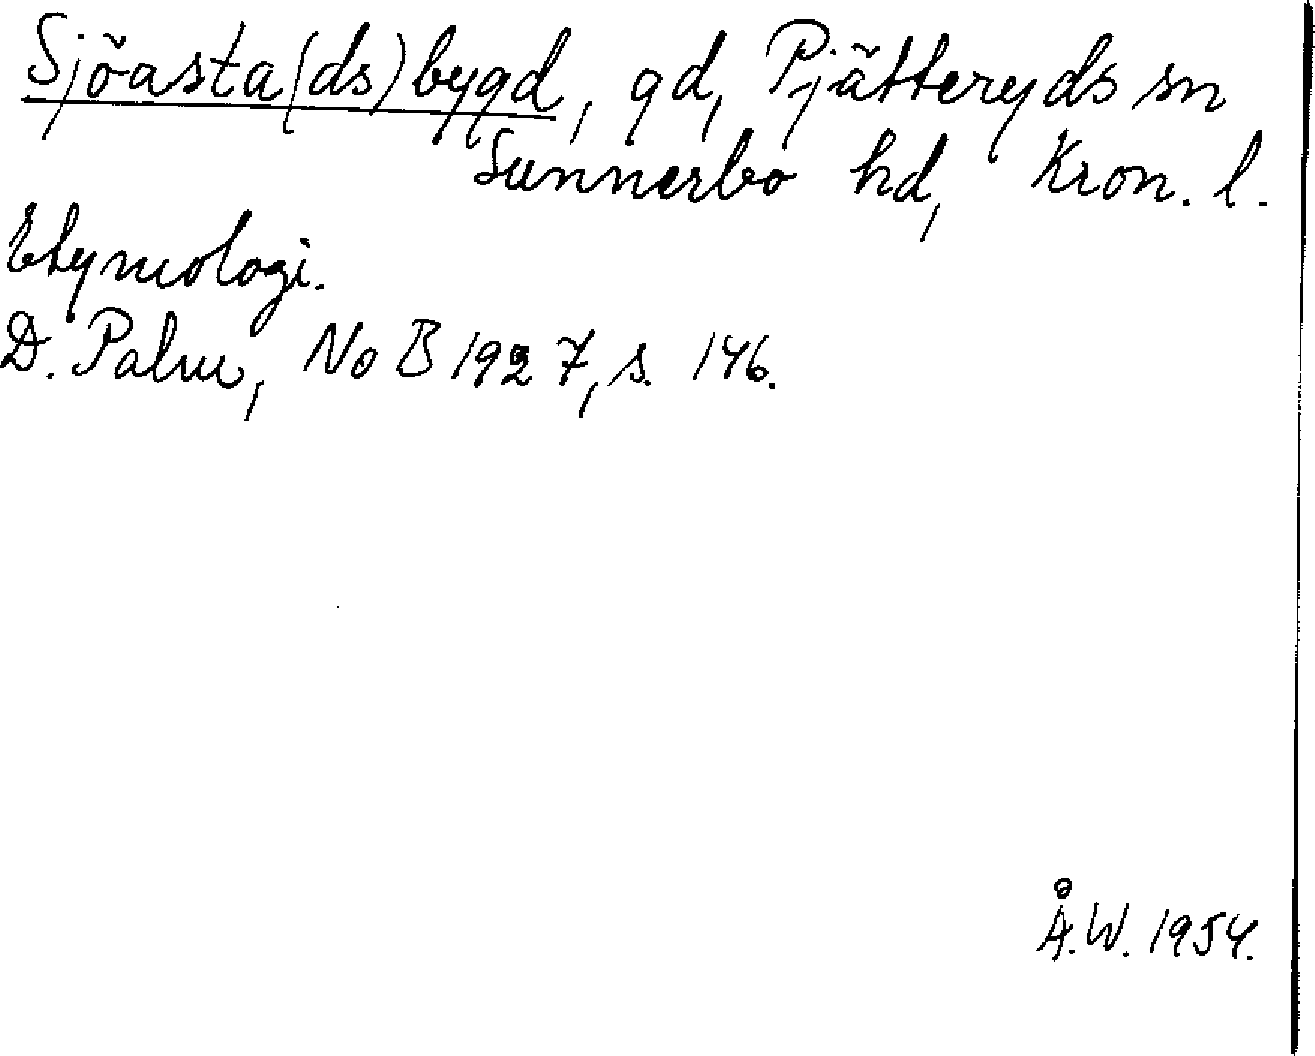 Sjöasta(ds)bygd, gd, Pjätteryds sn
Sunnerbo hd, Kron. l.
Etymologi.
D. Palm, NoB 1927, s. 146.
Å.W. 1954.